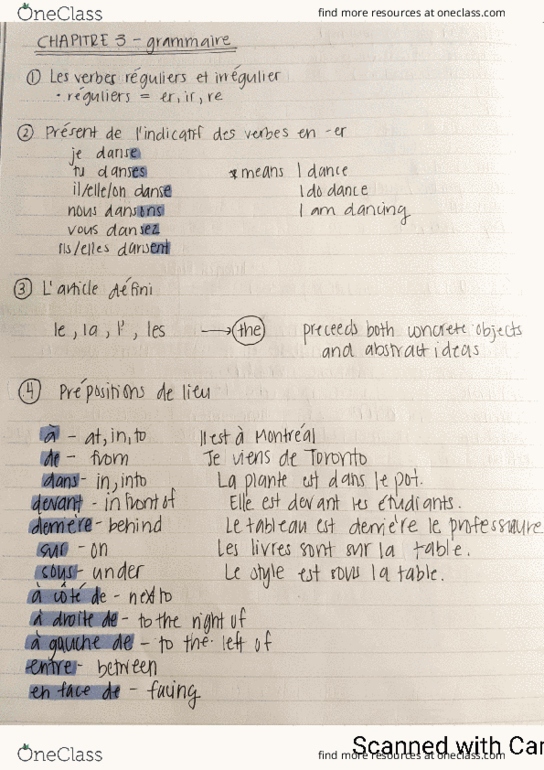 OneClass find more resources at oneclass.com
CHAPITRE 3 - grammaire
① Les verbes réguliers et irrégulier
• réguliers = er, ir, re
② Présent de l'indicatif des verbes en -er
je danse
tu danses * means I dance
il/elle/on danse I do dance
nous dansons I am dancing
vous dansez
ils/elles dansent
③ L'article défini
le, la, l', les → the preceeds both concrete objects
and abstract ideas
④ Prépositions de lieu
à - at, in, to Il est à Montréal
de - from Je viens de Toronto
dans - in, into La plante est dans le pot.
devant - in front of Elle est devant les étudiants.
derrière - behind Le tableau est derrière le professeure
sur - on Les livres sont sur la table.
sous - under Le style est sous la table.
à côté de - next to
à droite de - to the right of
à gauche de - to the left of
entre - between
en face de - facing
Scanned with Car
OneClass find more resources at oneclass.com